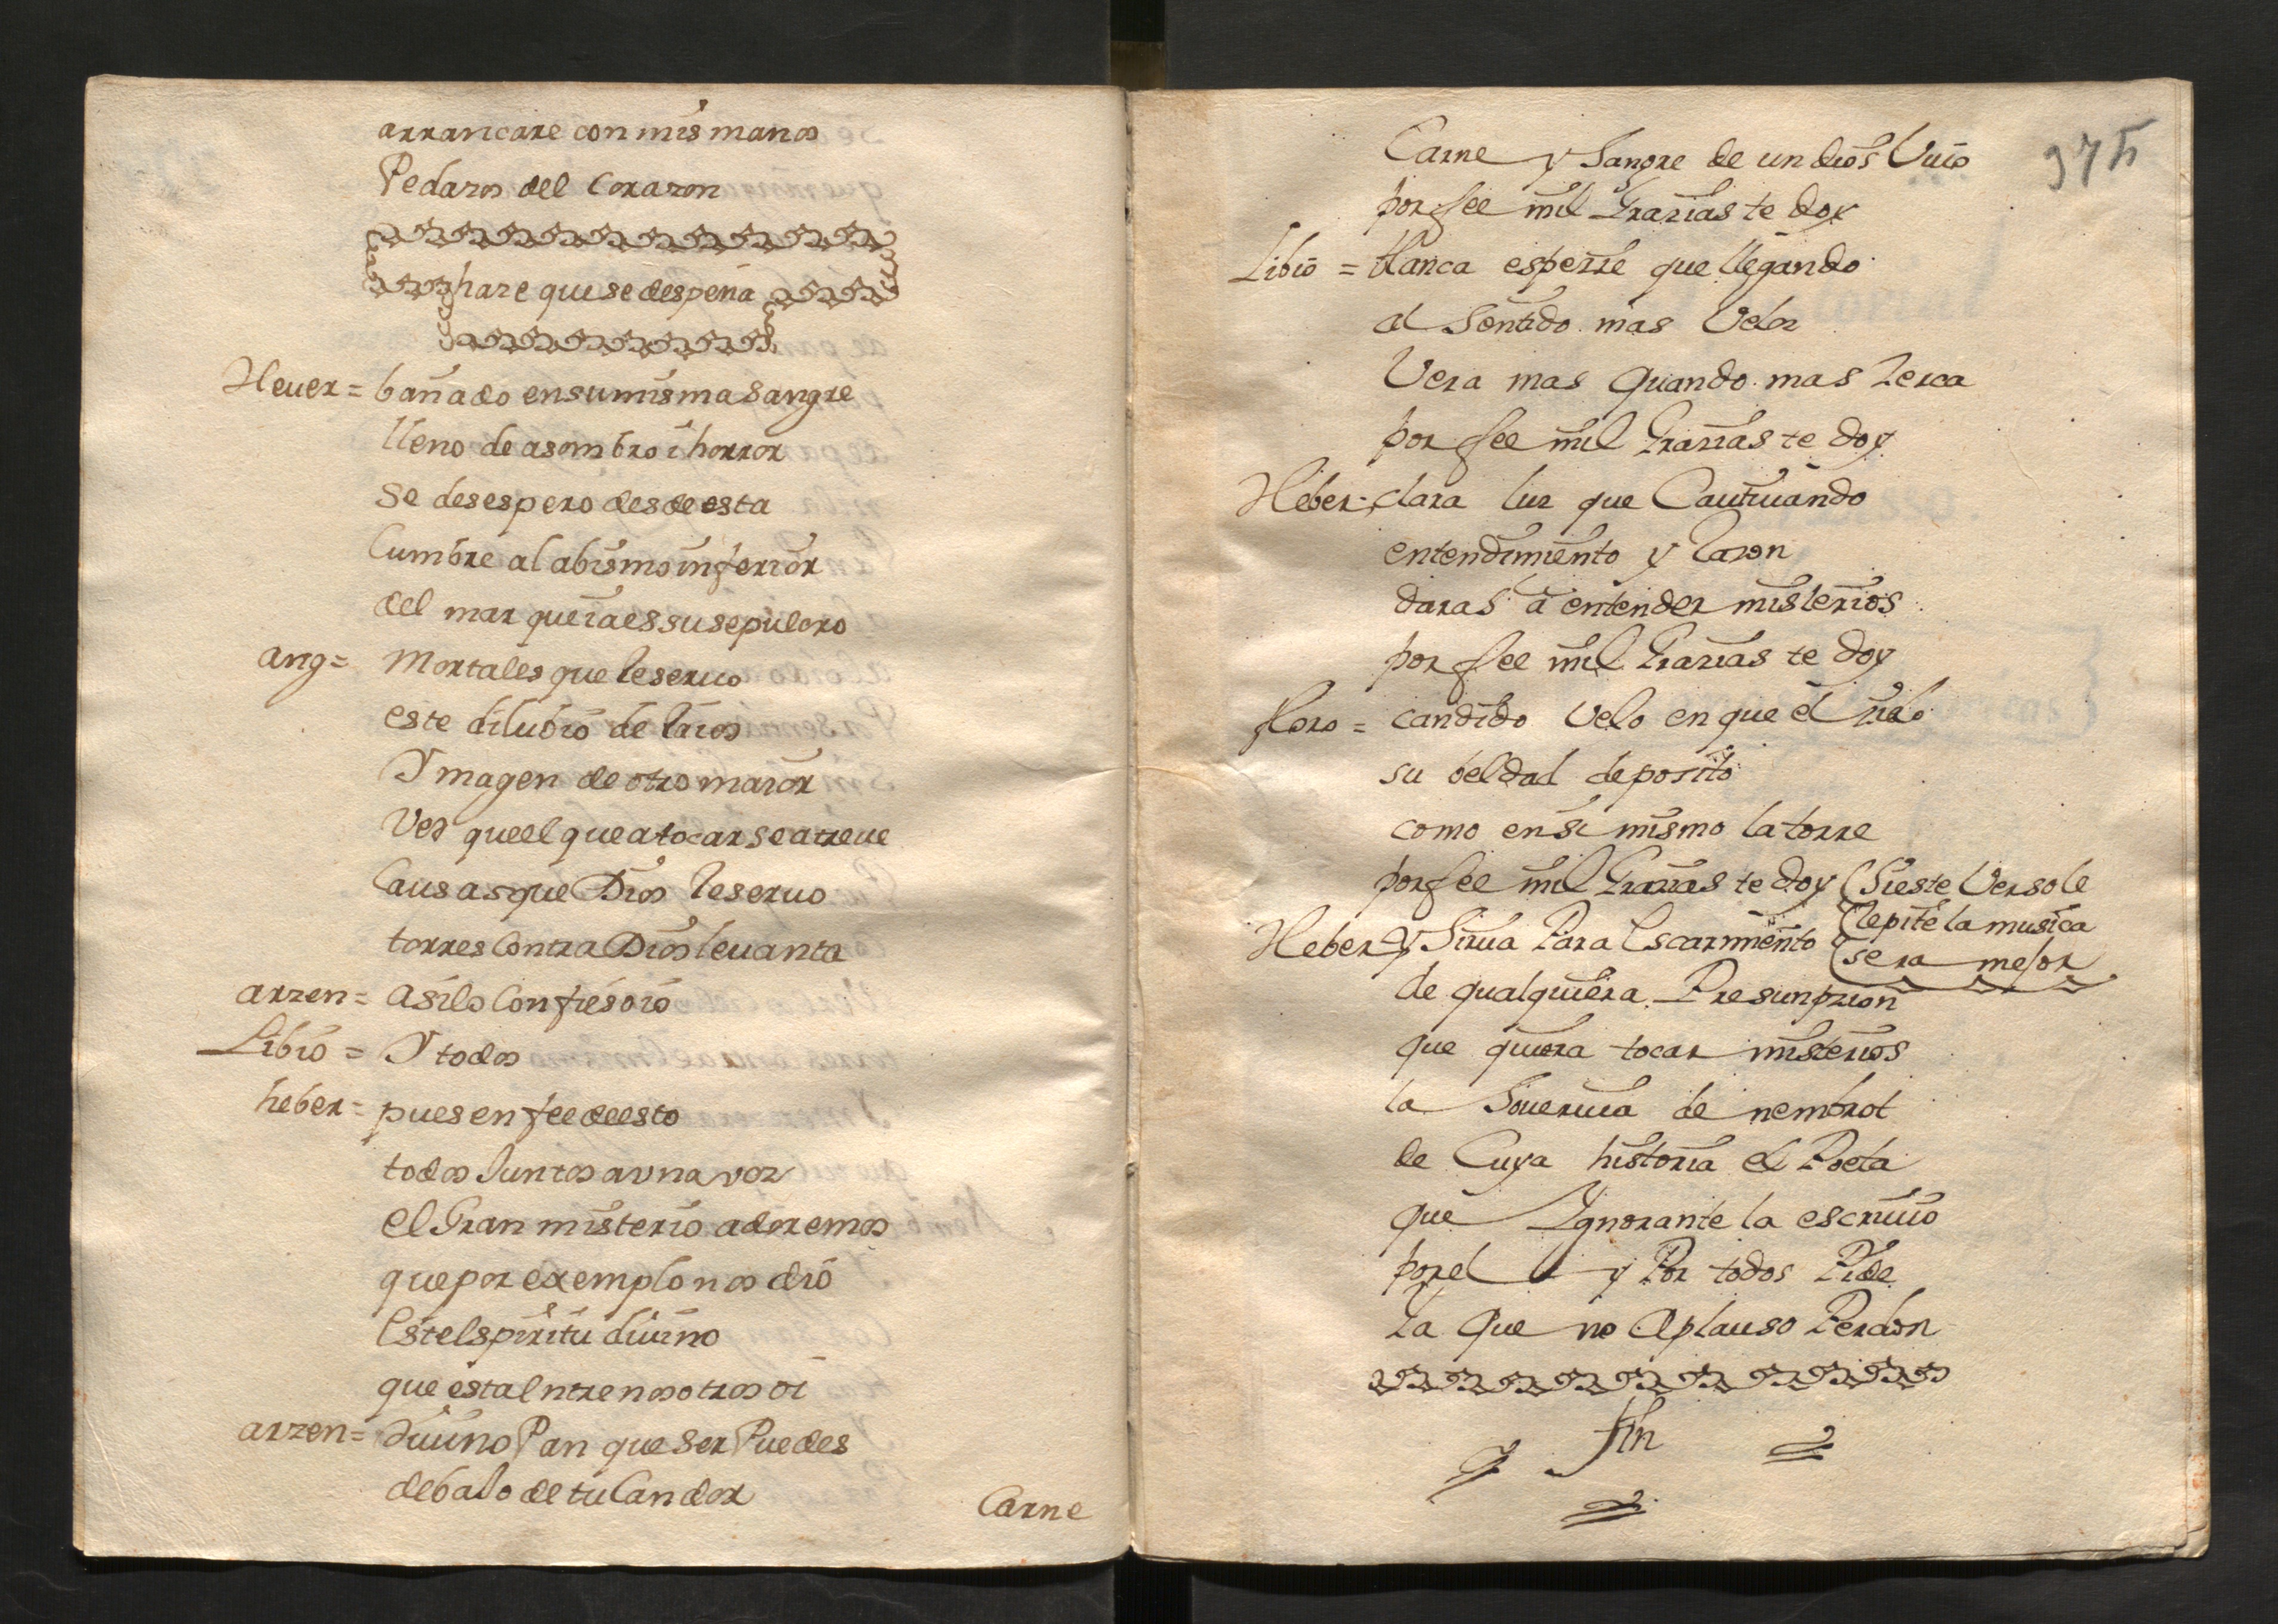 arrancare con mis manos
Pedazos del Corazon
hare que se despeña
Heuer = bañado en su misma sangre
lleno de asombro i horror
se desespero desde esta
Cumbre al abismo inferior
del mar que ia es su sepulcro
ang = Mortales que reseruo
este dilubio de raios
Ymagen de otro maior
Ved que el que a tocar se atreue
Causas que Dios reseruo
torres Contra Dios leuanta
arzen = asi lo Confieso io
Libio = Y todos
heber = pues en fee de esto
todos Juntos a vna voz
el Gran misterio adoremos
que por exemplo nos dio
Este espiritu diuino
que esta Entre nosotros oi
arzen = diuino Pan que ser Puedes
debaJo de tu Candor
Carne
375
Carne y Sangre de un dios Viuo
por fee mil Grazias te doy
Libio = blanca espezie que llegando
al Sentido mas Veloz
Vera mas quando mas Zerca
por fee mil Grazias te doy
Heber = clara luz que Cautiuando
entendimiento y Razon
daras a entender misterios
por fee mil Grazias te doy
floro = candido Velo en que el zielo
su beldad deposito
como en si mismo la torre
por fee mil Grazias te doy (Si este Verso le
repite la musica
sera meJor
Heber = y Sirua Para Escarmiento
de qualquiera Presunpzion
que quiera tocar misterios
la Souervia de nembrot
de Cuya historia el Poeta
que Ygnorante la escriuio
por el y Por todos Pide
Ya que no Aplauso Perdon
fin